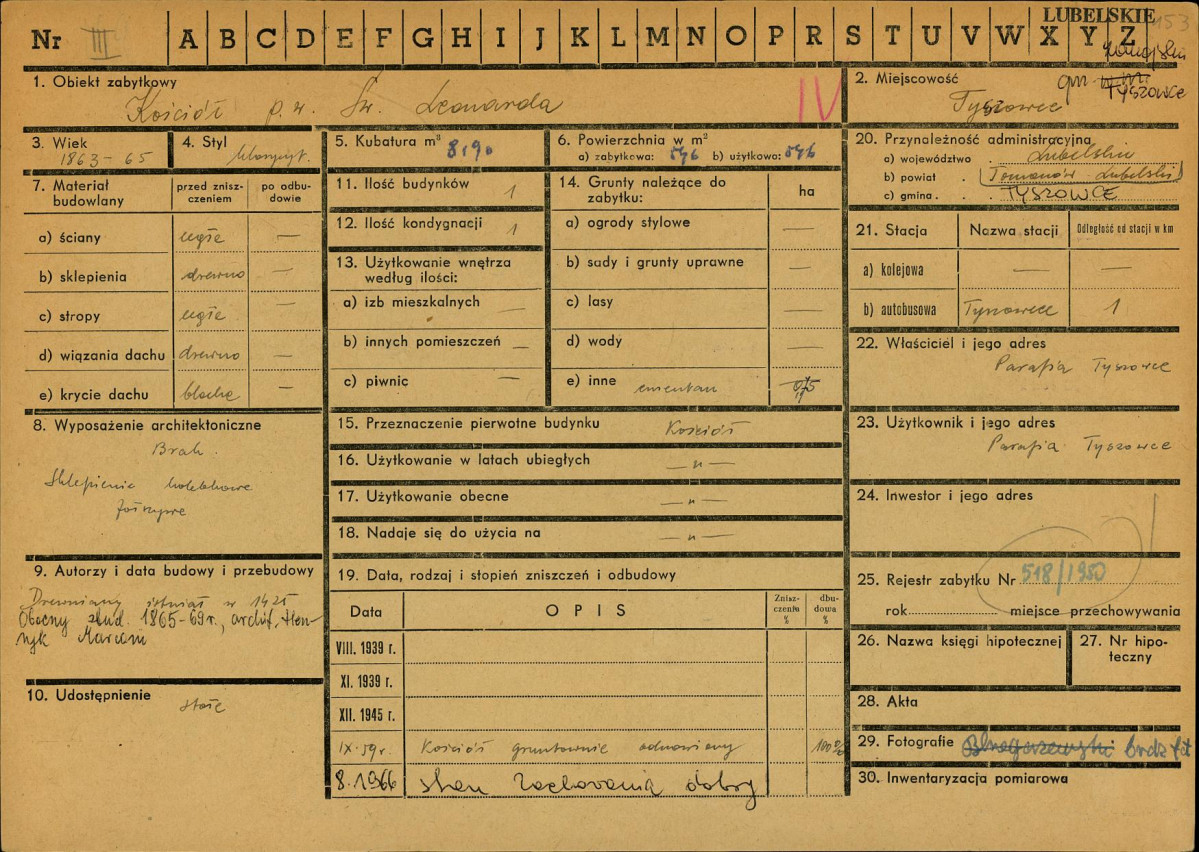 LUBELSKIE 153
Nr III A B C D E F G H I J K L M N O P R S T U V W X Y Z
1. Obiekt zabytkowy
Kościół p. w. Św. Leonarda
IV
2. Miejscowość
gm.
TYSZOWCE
Tyszowce
3. Wiek
1863-65
4. Styl
5. Kubatura m³ 8190
6. Powierzchnia w m²
a) zabytkowa: 546 b) użytkowa: 546
20. Przynależność administracyjna
a) województwo . Lubelskie
b) powiat . Tomaszów Lubelski
c) gmina . . TYSZOWCE
7. Materiał budowlany
przed zniszczeniem
po odbudowie
a) ściany cegła —
b) sklepienia drewno —
c) stropy cegła —
d) wiązania dachu drewno —
e) krycie dachu blacha —
11. Ilość budynków 1
12. Ilość kondygnacji 1
13. Użytkowanie wnętrza
według ilości:
a) izb mieszkalnych —
b) innych pomieszczeń —
c) piwnic —
14. Grunty należące do
zabytku:
ha
a) ogrody stylowe —
b) sady i grunty uprawne —
c) lasy —
d) wody —
e) inne cmentarz
21. Stacja Nazwa stacji Odległość od stacji w km
a) kolejowa — —
b) autobusowa Tyszowce 1
22. Właściciel i jego adres
Parafia Tyszowce
8. Wyposażenie architektoniczne
Brak.
Sklepienia kolebkowe
15. Przeznaczenie pierwotne budynku Kościół
16. Użytkowanie w latach ubiegłych —„—
17. Użytkowanie obecne —„—
18. Nadaje się do użycia na —„—
23. Użytkownik i jego adres
Parafia Tyszowce
24. Inwestor i jego adres
9. Autorzy i data budowy i przebudowy
Drewniany istniał w 1425
Obecny zbud. 1865-69 r., archit. Hen-
ryk Marconi
10. Udostępnienie
stałe
19. Data, rodzaj i stopień zniszczeń i odbudowy
Data OPIS Zniszczenie % dbudowa %
VIII. 1939 r.
XI. 1939 r.
XII. 1945 r.
IX. 59 r. Kościół gruntownie odnowiony 100%
8. 1966 stan zachowania dobry
25. Rejestr zabytku Nr 518/1950
rok miejsce przechowywania
26. Nazwa księgi hipotecznej
27. Nr hipoteczny
28. Akta
29. Fotografie
30. Inwentaryzacja pomiarowa